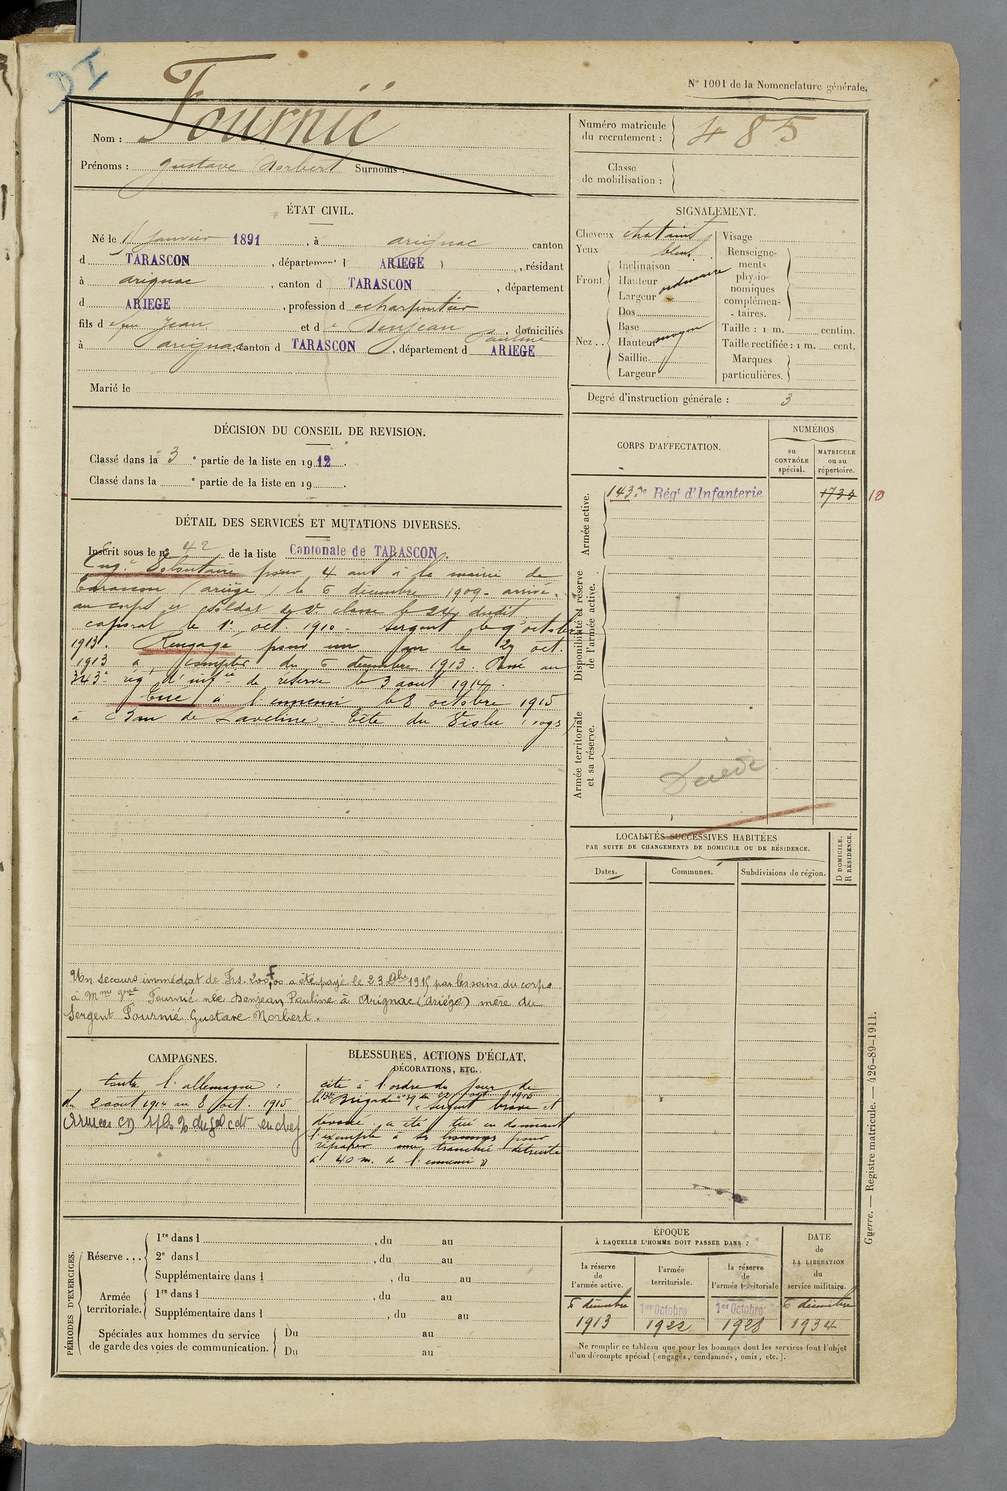 DI
N° 1001 de la Nomenclature générale.
Nom : Fournié
Prénoms : Gustave Norbert Surnoms :
Numéro matricule du recrutement : 485
Classe de mobilisation :
ÉTAT CIVIL.
Né le janvier 1891, à arignac canton
d TARASCON, département d ARIEGE, résidant
à arignac, canton d TARASCON, département
d ARIEGE, profession d charpentier
fils d feu Jean et d Denjean Pauline domiciliés
à arignac, canton d TARASCON, département d ARIEGE
Marié le
SIGNALEMENT.
Cheveux chatains
Yeux bleus
Front. Inclinaison
Hauteur ordinaire
Largeur
Nez.. Dos
Base
Hauteur moyen
Saillie
Largeur
Visage
Renseignements physionomiques complémentaires.
Taille : 1 m. centim.
Taille rectifiée : 1 m. cent.
Marques particulières.
Degré d'instruction générale : 3
DÉCISION DU CONSEIL DE REVISION.
Classé dans la 3e partie de la liste en 1912.
Classé dans la e partie de la liste en 19
CORPS D'AFFECTATION.
NUMÉROS
au CONTRÔLE spécial.
MATRICULE ou au répertoire.
Armée active.
143me Régt d'Infanterie 10
Disponibilité et réserve de l'armée active.
Armée territoriale et sa réserve.
Décédé
DÉTAIL DES SERVICES ET MUTATIONS DIVERSES.
Inscrit sous le n° 42 de la liste Cantonale de TARASCON.
Engé Volontaire pour 4 ans à la mairie de
Tarascon (ariège) le 6 décembre 1909. arrivé
au corps et soldat de 2e classe le dudit
caporal le 1er oct 1910. Sergent le 9 octobre
1913. Rengagé pour un an le 29 oct.
1913 à compter du 6 décembre 1913. Passé au
343e rég d'infie de réserve le 3 aout 1914.
Tué à l'ennemi le 8 octobre 1915
à Ban de Laveline Tête du Violu (vosges)
Un secours immédiat de Frs. a été payé le 23 Xbre 1915 par les soins du corps
à Mme Fournié née Denjean Pauline à Arignac (Ariège) mère du
Sergent Fournié Gustave Norbert.
LOCALITÉS SUCCESSIVES HABITÉES
PAR SUITE DE CHANGEMENTS DE DOMICILE OU DE RÉSIDENCE.
Dates.
Communes.
Subdivisions de région.
D DOMICILE. R RÉSIDENCE.
CAMPAGNES.
Contre l'allemagne :
du 2 aout 1914 au 8 oct. 1915
BLESSURES, ACTIONS D'ÉCLAT, DÉCORATIONS, ETC.
cité à l'ordre du jour de
la Brigade 1915
" sergent brave et
dévoué, a été tué en donnant
l'exemple à ses hommes pour
réparer une tranchée détruite
à 40 m. de l'ennemi "
PÉRIODES D'EXERCICES.
Réserve ... 1re dans l , du au
2e dans l , du au
Supplémentaire dans l , du au
Armée territoriale. 1re dans l , du au
Supplémentaire dans l , du au
Spéciales aux hommes du service de garde des voies de communication. Du au
Du au
ÉPOQUE
À LAQUELLE L'HOMME DOIT PASSER DANS :
la réserve de l'armée active.
l'armée territoriale.
la réserve de l'armée territoriale
DATE de LA LIBÉRATION du service militaire.
6 décembre 1913
1er Octobre 1922
1er Octobre 1928
6 décembre 1934
Ne remplir ce tableau que pour les hommes dont les services font l'objet
d'un décompte spécial (engagés, condamnés, omis, etc.).
Guerre. — Registre matricule. — 426-89-1911.